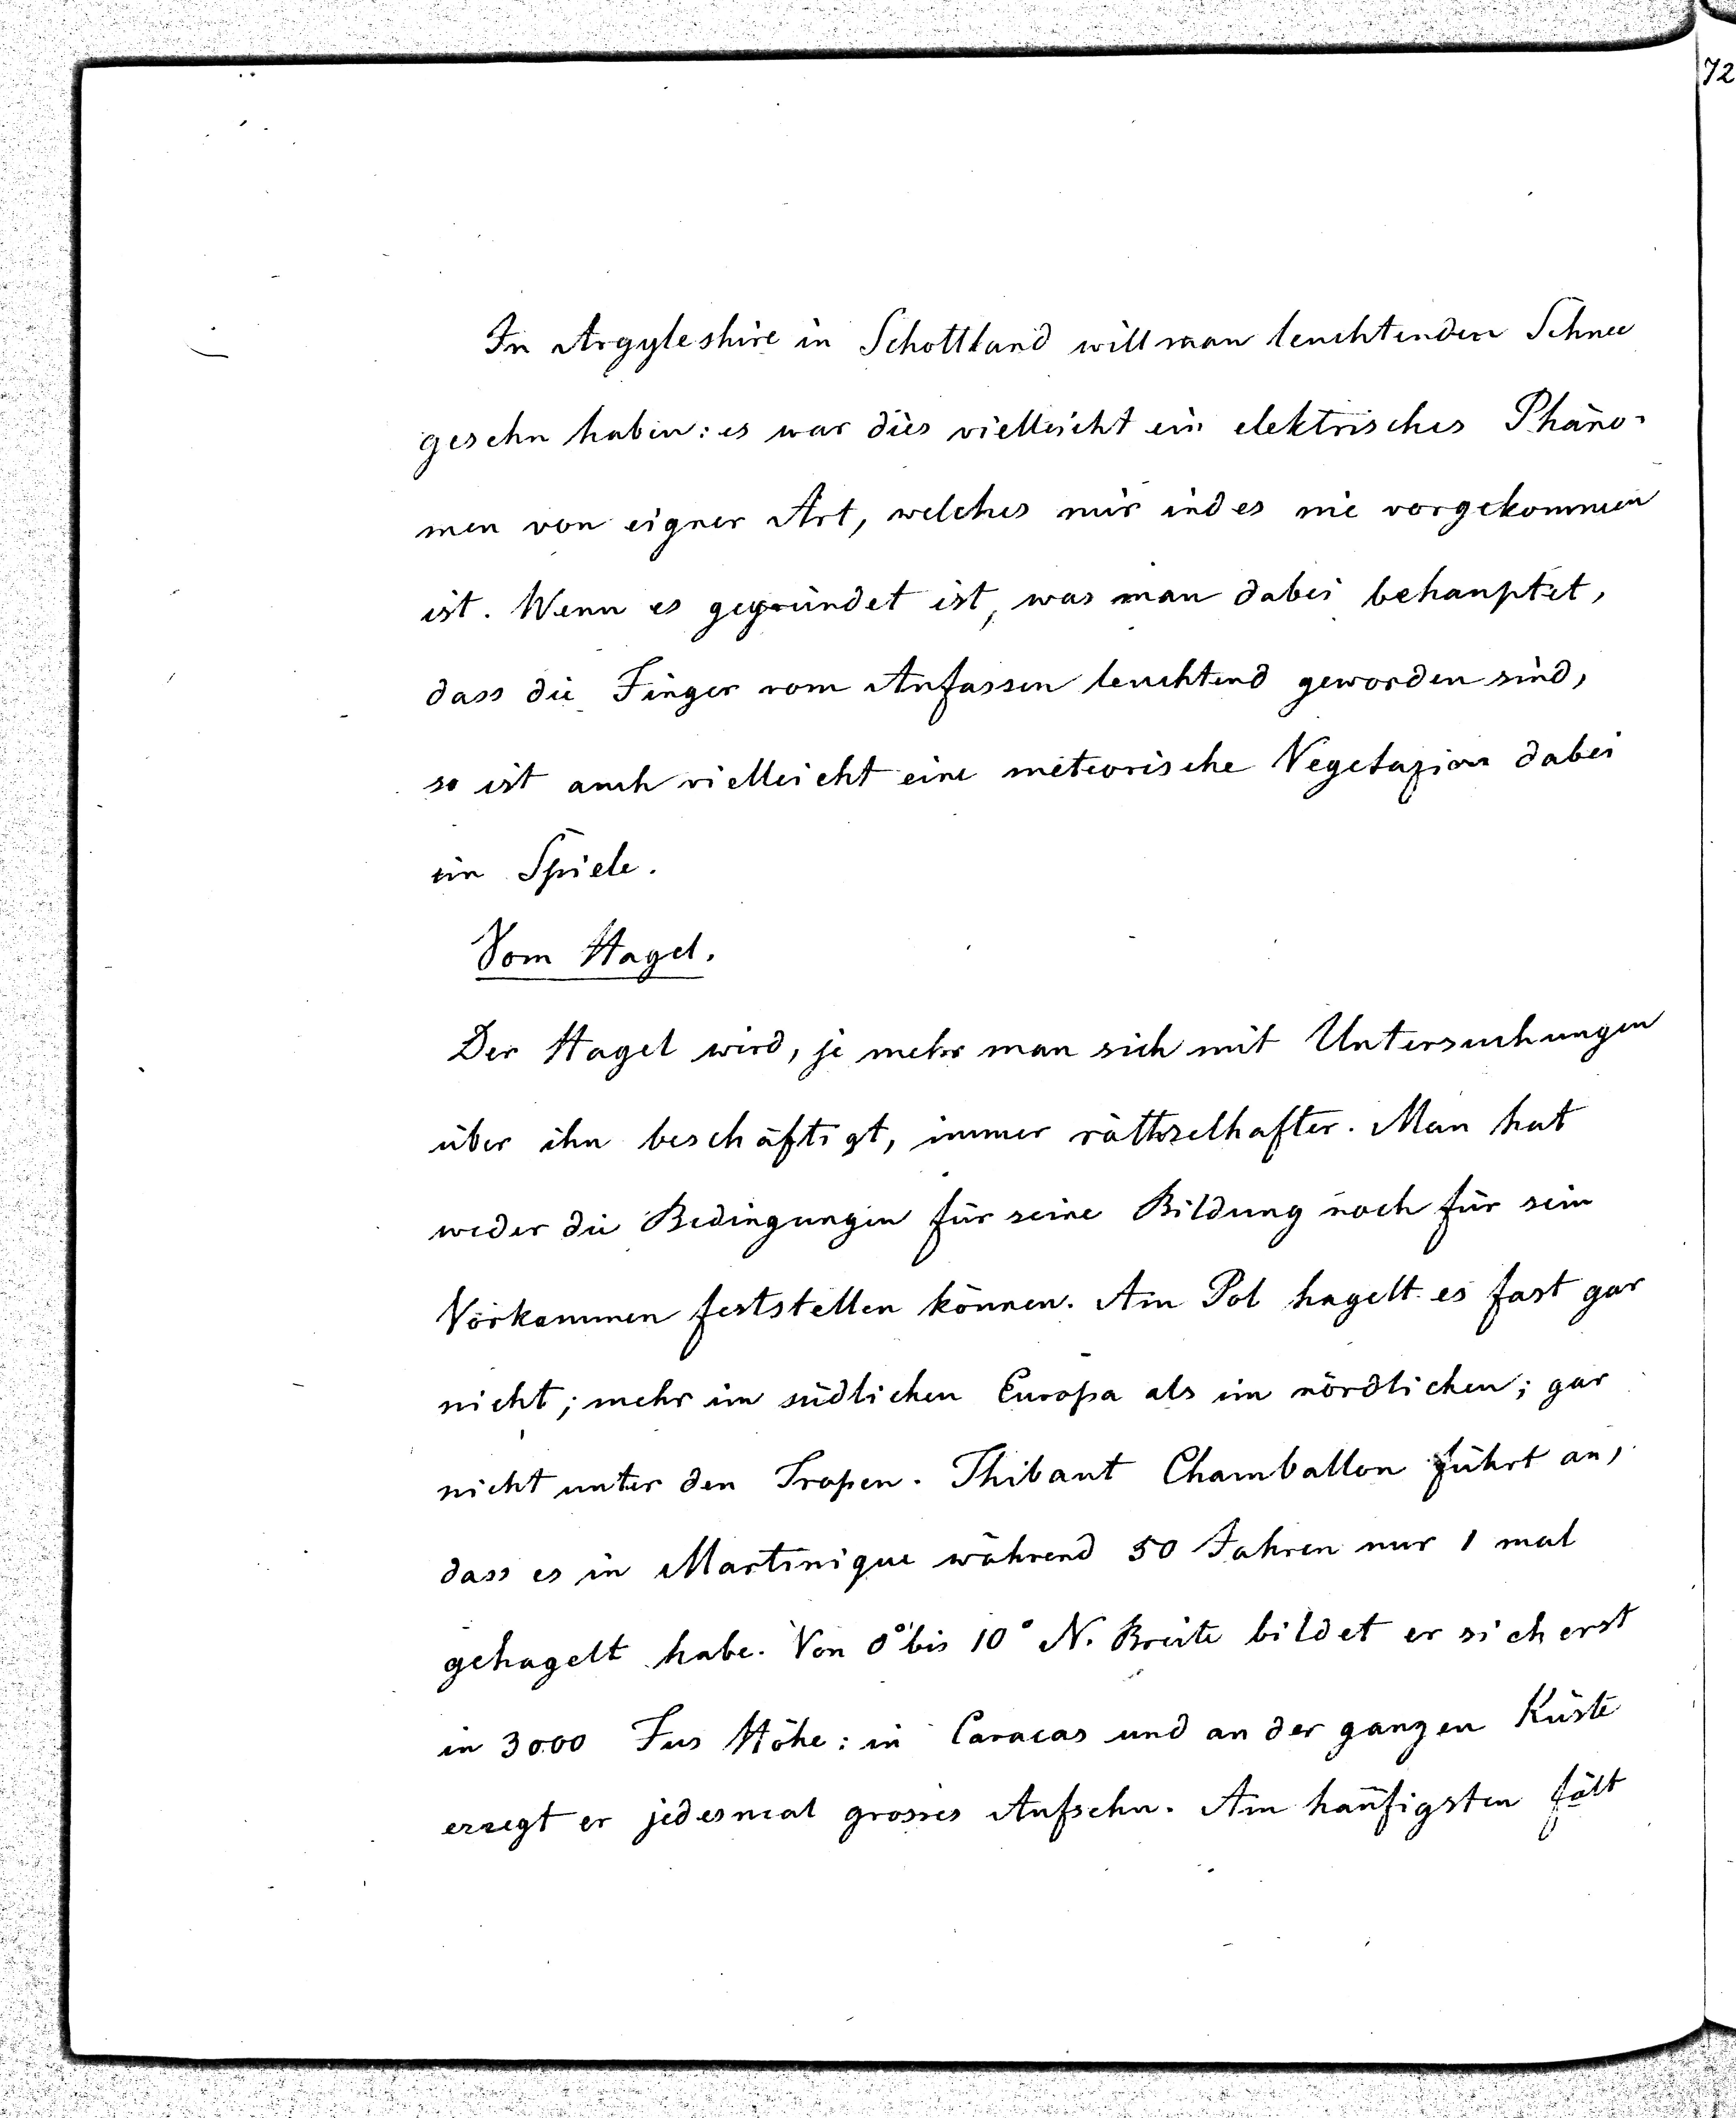 72
In Argyleshire in Schottland will man leuchtenden Schnee
gesehn haben: es war dies vielleicht ein elektrisches Phäno-
men von eigner Art, welches mir indes nie vorgekommen
ist. Wenn es gegründet ist, was man dabei behauptet,
dass die Finger vom Anfassen leuchtend geworden sind,
so ist auch vielleicht eine meteorische Vegetazion dabei
im Spiele.
Vom Hagel.
Der Hagel wird, je mehr man sich mit Untersuchungen
über ihn beschäftigt, immer räthselhafter. Man hat
weder die Bedingungen für seine Bildung noch für sein
Vorkommen feststellen können. Am Pol hagelt es fast gar
nicht; mehr im südlichen Europa als im nördlichen; gar
nicht unter den Tropen. Thibaut Chamballon führt an,
dass es in Martinique während 50 Jahren nur 1 mal
gehagelt habe. Von 0° bis 10° N. Breite bildet er sich erst
in 3000 Fus Höhe: in Caracas und an der ganzen Küste
erregt er jedesmal grosses Aufsehn. Am häufigsten fält